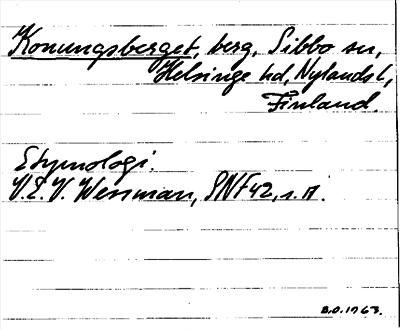 Konungsberget, berg, Sibbo sn,
Helsinge hd, Nylands l,
Finland.
Etymologi.
V.E.V. Wessman, SNF 42, s.
B.O. 1963.